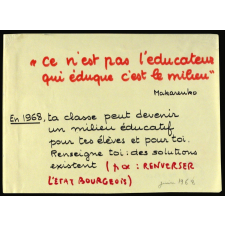 "Ce n'est pas l'educateur
qui éduque c'est le milieu"
Makarenko
En 1968, ta classe peut devenir
un milieu éducatif
pour tes élèves et pour toi.
Renseigne toi : des solutions
existent (p ex : RENVERSER
L'ETAT BOURGEOIS)
juin 1968